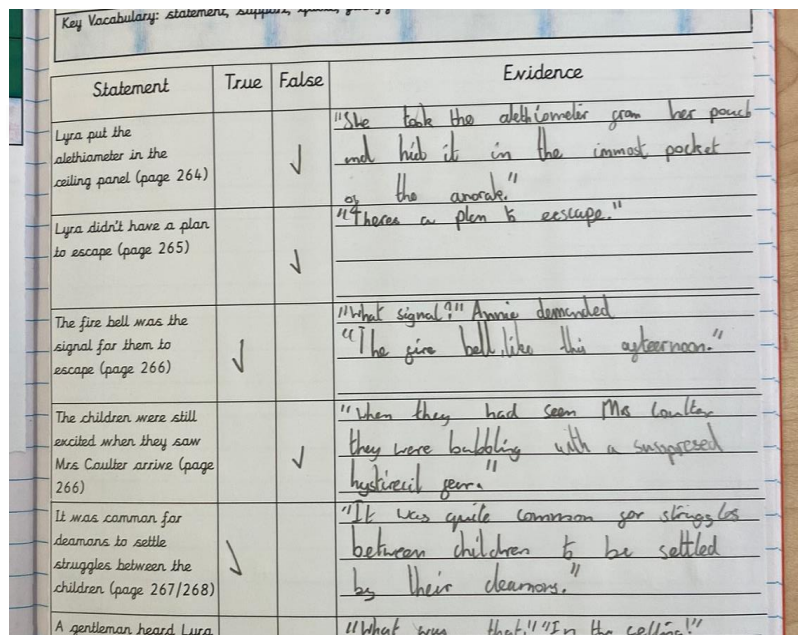 Key Vocabulary: statement, support,
Statement True False Evidence
Lyra put the
alethiometer in the
ceiling panel (page 264)
"She took the alethiometer from her pouch
and hid it in the immost pocket
of the anorak."
Lyra didn't have a plan
to escape (page 265)
"Theres a plan to eescape."
The fire bell was the
signal for them to
escape (page 266)
"What signal?" Annie demanded
"The fire bell, like this afteernoon."
The children were still
excited when they saw
Mrs Coulter arrive (page
266)
"When they had seen Mrs Coulter
they were bubbling with a suppresed
hystirecil fear."
It was common for
deamons to settle
struggles between the
children (page 267/268)
"It was quite common for struggles
between children to be settled
by their deamons."
A gentleman heard Lyra
"What was that" "In the celling!"